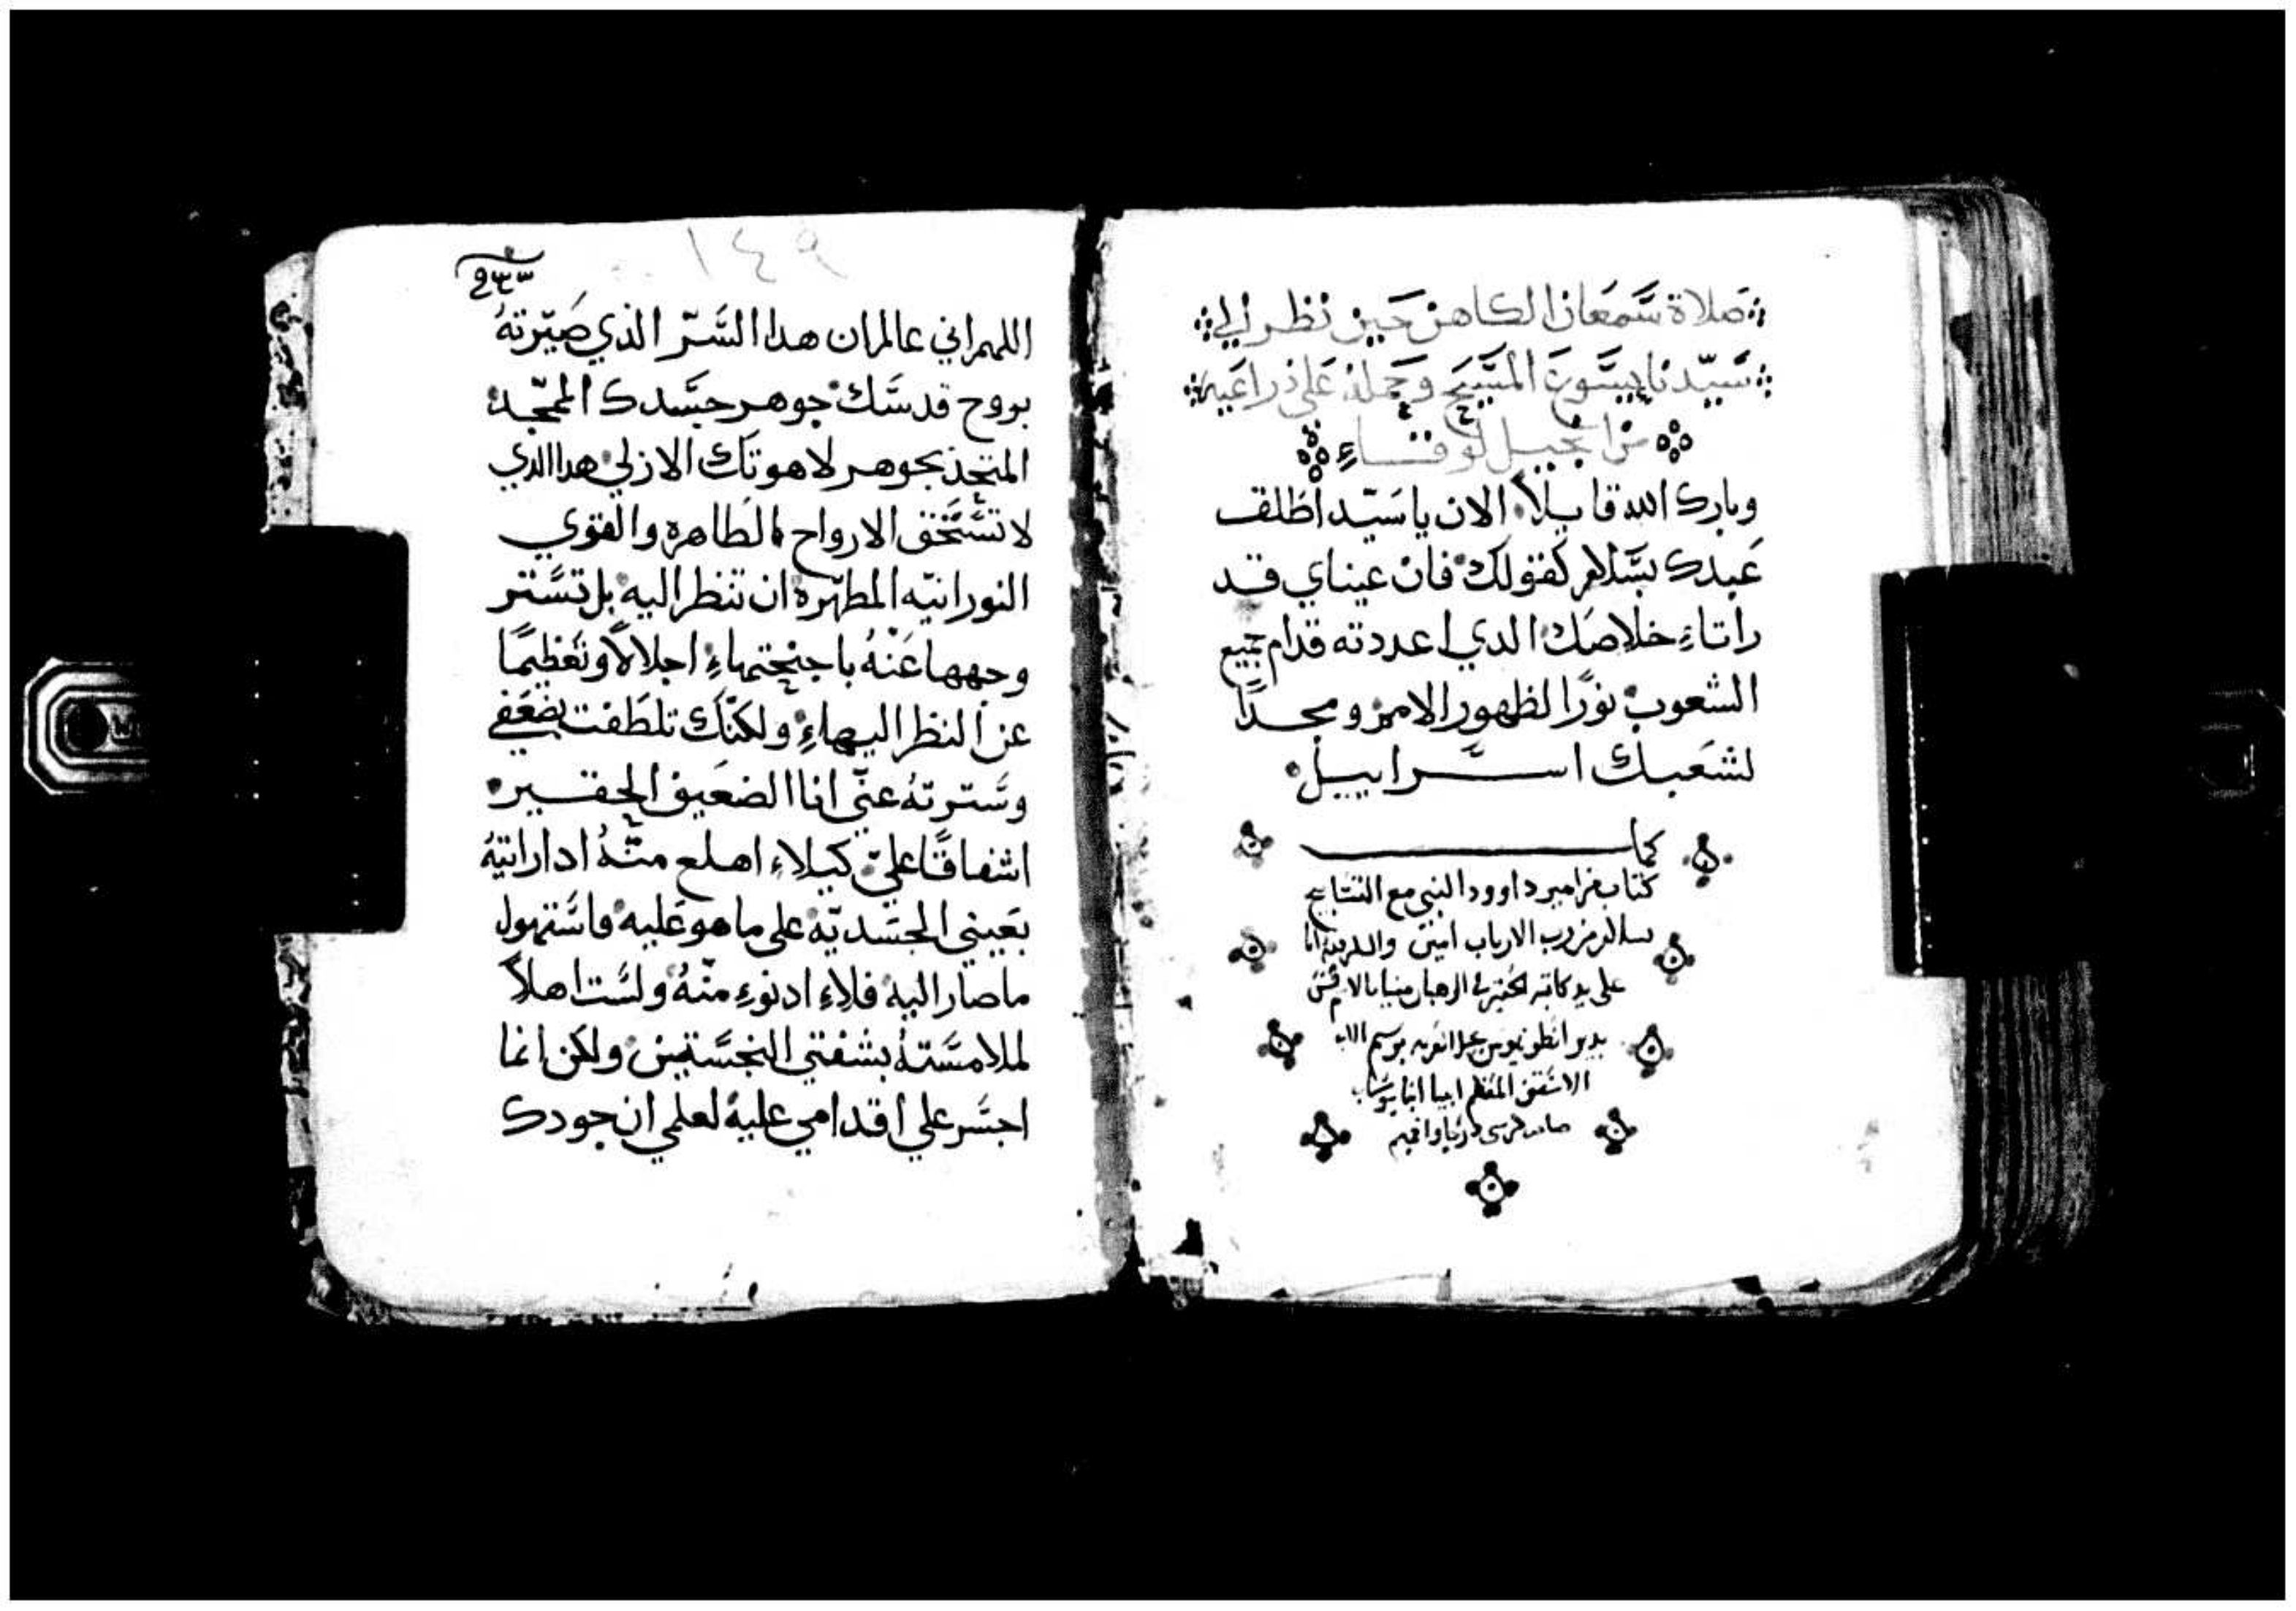 صلاة سمعان الكاهن حين نظر الي
سيدنا يسوع المسيح وحمله علي دراعيه
من انجيل لوقاء
وبارك الله قايلاً الان يا سيد اطلق
عبدك بسلام كقولك فان عيناي قد
راتاء خلاصك الدي اعددته قدام جميع
الشعوب نورًا لظهور الامم ومجدًا
لشعبك اسراييل
كمل
كتاب مزامير داوود النبي مع التسابيح
بسلام من رب الارباب امين
علي يد كاتبه الحقير في الرهبان
بدير انطونيوس برسم الاب
الاسقف المعظم ابينا انبا يوساب
١٤٩
اللهم اني عالم ان هدا السر الذي صيرتهُ
بروح قدسك جوهر جسدك الممجد
المتحد بجوهر لاهوتك الازلي هدا الدي
لا تستحق الارواح الطاهره والقوي
النورانيه المطهره ان تنظر اليه بل تستر
وجهها عنهُ باجنحتهاء اجلالاً وتعظيمًا
عن النظر اليهاء ولكنك تلطفت بضعفي
وسترتهُ عني انا الضعيف الحقير
اشفاقًا علي كيلاء اهلع منهُ ادا رايتهُ
بعيني الجسديه علي ما هو عليه فاستهول
ما صار اليه فلاء ادنوء منهُ ولست اهلاً
لملامسته بشفتي النجستين ولكن انما
اجسر علي اقدامي عليه لعلمي ان جودك